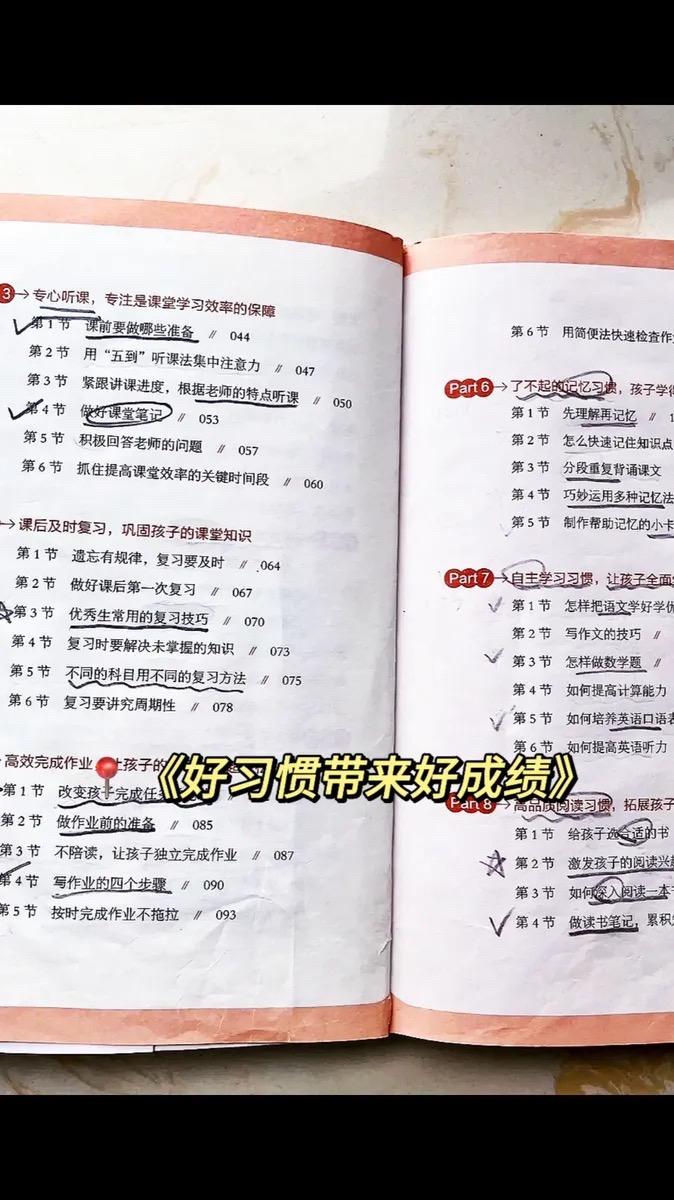 3 专心听课，专注是课堂学习效率的保障
第1节 课前要做哪些准备 // 044
第2节 用“五到”听课法集中注意力 // 047
第3节 紧跟讲课进度，根据老师的特点听课 // 050
第4节 做好课堂笔记 // 053
第5节 积极回答老师的问题 // 057
第6节 抓住提高课堂效率的关键时间段 // 060
课后及时复习，巩固孩子的课堂知识
第1节 遗忘有规律，复习要及时 // 064
第2节 做好课后第一次复习 // 067
第3节 优秀生常用的复习技巧 // 070
第4节 复习时要解决未掌握的知识 // 073
第5节 不同的科目用不同的复习方法 // 075
第6节 复习要讲究周期性 // 078
高效完成作业 让孩子的
第1节 改变孩子完成任
第2节 做作业前的准备 // 085
第3节 不陪读，让孩子独立完成作业 // 087
第4节 写作业的四个步骤 // 090
第5节 按时完成作业不拖拉 // 093
第6节 用简便法快速检查作
Part 6 了不起的记忆习惯，孩子学得
第1节 先理解再记忆 // 1
第2节 怎么快速记住知识点
第3节 分段重复背诵课文
第4节 巧妙运用多种记忆法
第5节 制作帮助记忆的小卡
Part 7 自主学习习惯，让孩子全面
第1节 怎样把语文学好学优
第2节 写作文的技巧 //
第3节 怎样做数学题 //
第4节 如何提高计算能力
第5节 如何培养英语口语表
第6节 如何提高英语听力
Part 8 高品质阅读习惯，拓展孩子
第1节 给孩子选合适的书
第2节 激发孩子的阅读兴趣
第3节 如何深入阅读一本书
第4节 做读书笔记，累积
《好习惯带来好成绩》